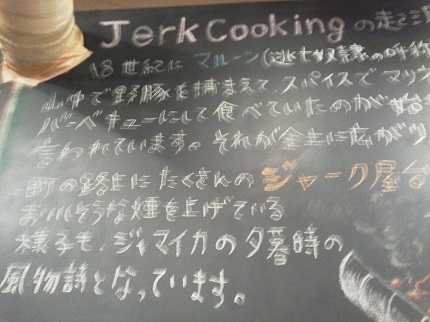 Jerk Cooking の起源
18世紀に マルーン(逃亡奴隷の呼称
山中で野豚を捕まえて、スパイスでマリ
バーベキューにして食べていたのが始
言われています。それが全土に広がり
町の路上にたくさんの ジャーク屋台
おいしそうな煙を上げている
様子も、ジャマイカの夕暮時の
風物詩となっています。